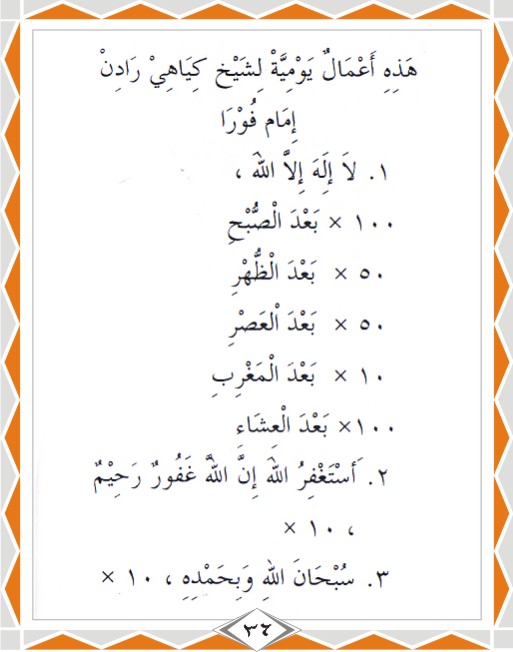 هَذِهِ أَعْمَالٌ يَوْمِيَّةْ لِشَيْخ كِيَاهِيْ رَادِنْ
إِمَام فُوْرَا
١. لاَ إِلَهَ إِلاَّ الله ،
١٠٠ × بَعْدَ الْصُّبْحِ
٥٠ × بَعْدَ الْظُّهْرِ
٥٠ × بَعْدَ الْعَصْرِ
١٠ × بَعْدَ الْمَغْرِبِ
١٠٠× بَعْدَ الْعِشَاءِ
٢. أَسْتَغْفِرُ الله إِنَّ اللهَّ غَفُورٌ رَحِيْمٌ
، ١٠ ×
٣. سُبْحَانَ اللهِ وَبِحَمْدِهِ ، ١٠ ×
٣٤